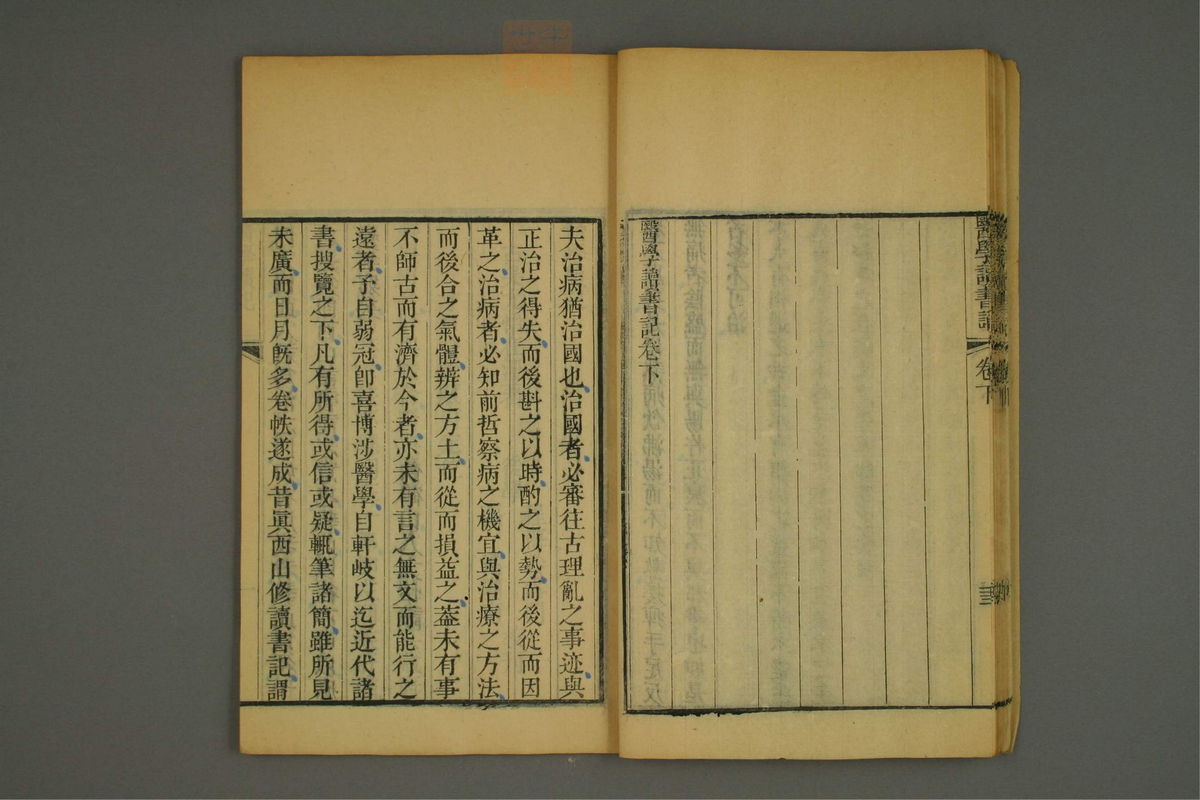 醫學讀書記
卷下
醫學讀書記卷下
夫治病猶治國也治國者必審往古理亂之事迹與
正治之得失而後斟之以時酌之以勢而後從而因
革之治病者必知前哲察病之機宜與治療之方法
而後合之氣體辨之方土而從而損益之葢未有事
不師古而有濟於今者亦未有言之無文而能行之
遠者予自弱冠卽喜博涉醫學自軒岐以迄近代諸
書搜覽之下凡有所得或信或疑輒筆諸簡雖所見
未廣而日月旣多卷帙遂成昔眞西山修讀書記謂